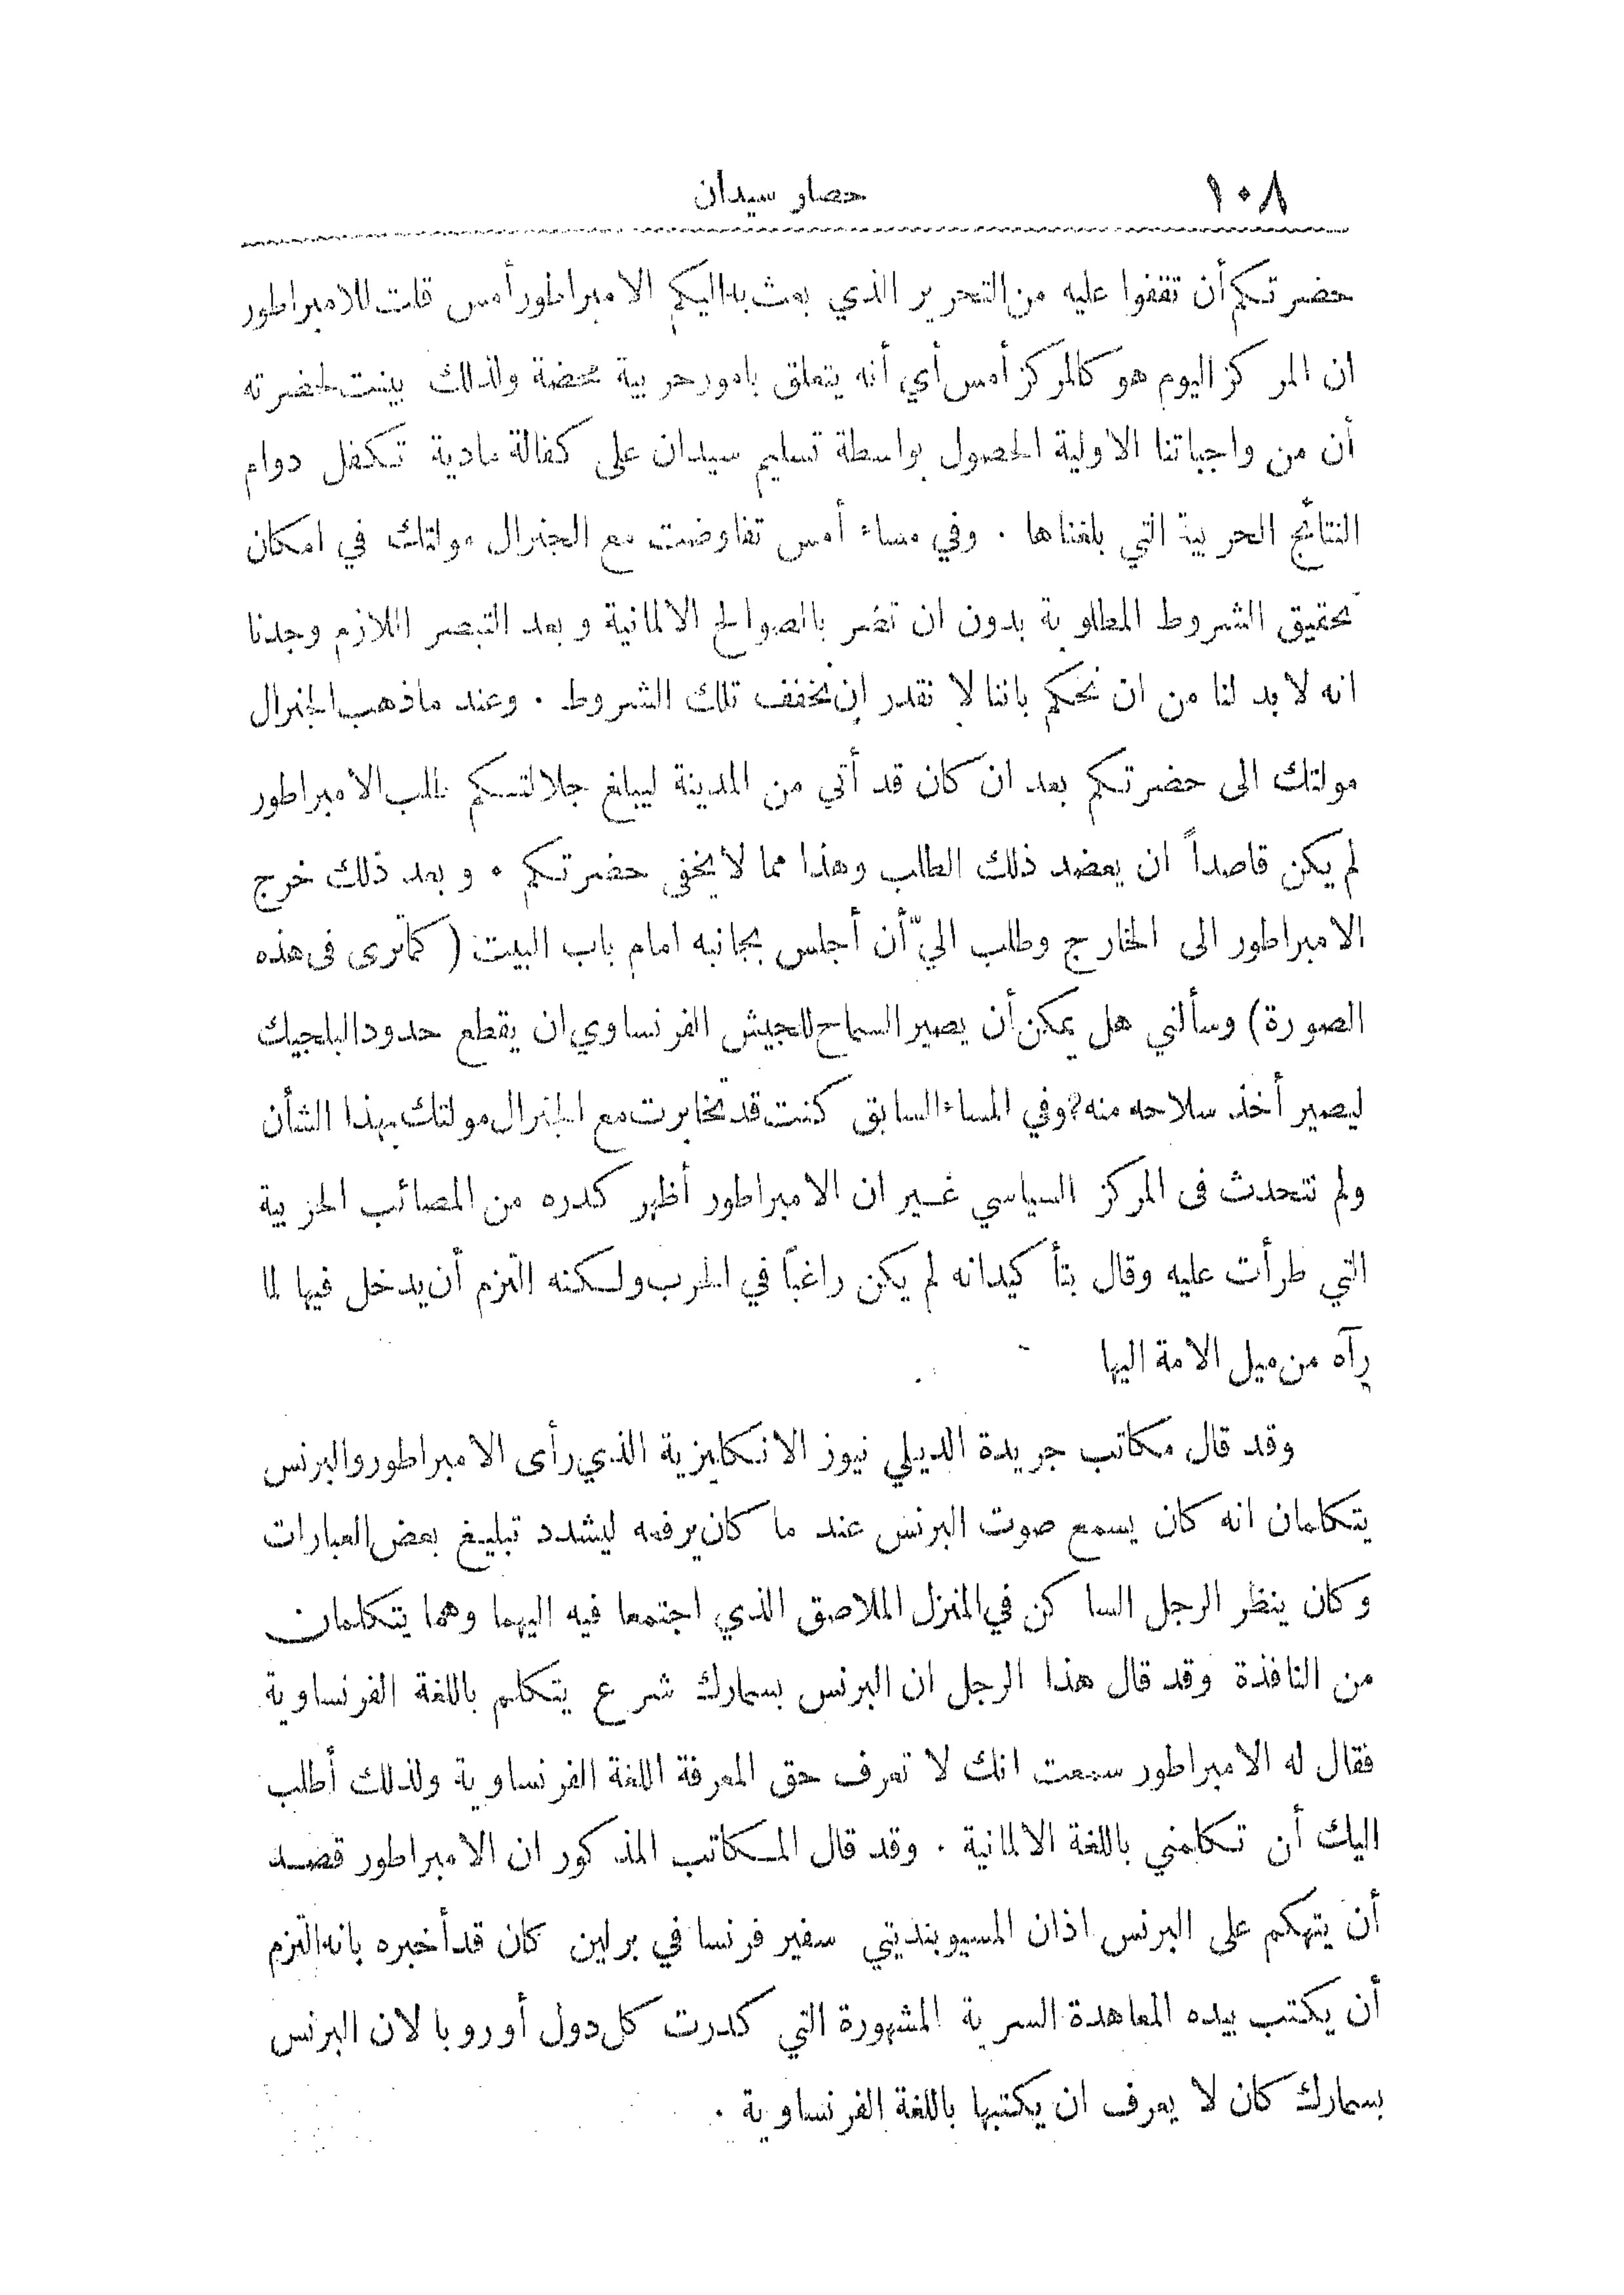 ١٠٨
حصار سيدان
حضرتكم أن تقفوا عليه من التحرير الذي بعث به اليكم الامبراطور أمس قلت للامبراطور
ان المركز اليوم هو كالمركز أمس أي أنه يتعلق بامور حربية محضة ولذلك بينت لحضرته
أن من واجباتنا الاولية الحصول بواسطة تسليم سيدان على كفالة مادية تكفل دوام
النتائج الحربية التي بلغناها . وفي مساء أمس تفاوضت مع الجنرال مولتك في امكان
تحقيق الشروط المطلوبة بدون ان تضر بالصوالح الالمانية وبعد التبصر اللازم وجدنا
انه لا بد لنا من ان نحكم باننا لا نقدر ان نخفف تلك الشروط . وعند ما ذهب الجنرال
مولتك الى حضرتكم بعد ان كان قد أتي من المدينة ليبلغ جلالتكم طلب الامبراطور
لم يكن قاصداً ان يعضد ذلك الطلب وهذا مما لا يخفى حضرتكم . وبعد ذلك خرج
الامبراطور الى الخارج وطلب اليّ أن أجلس بجانبه امام باب البيت ( كما ترى فى هذه
الصورة ) وسألني هل يمكن أن يصير السماح للجيش الفرنساوي ان يقطع حدود البلجيك
ليصير أخذ سلاحه منه ? وفي المساء السابق كنت قد تخابرت مع الجنرال مولتك بهذا الشأن
ولم نتحدث فى المركز السياسي غير ان الامبراطور أظهر كدره من المصائب الحربية
التي طرأت عليه وقال بتأكيد انه لم يكن راغباً في الحرب ولكنه التزم أن يدخل فيها لما
رآه من ميل الامة اليها
وقد قال مكاتب جريدة الديلي نيوز الانكليزية الذي رأى الامبراطور والبرنس
يتكلمان انه كان يسمع صوت البرنس عند ما كان يرفعه ليشدد تبليغ بعض العبارات
وكان ينظر الرجل الساكن في المنزل الملاصق الذي اجتمعا فيه اليهما وهما يتكلمان
من النافذة وقد قال هذا الرجل ان البرنس بسمارك شرع يتكلم باللغة الفرنساوية
فقال له الامبراطور سمعت انك لا تعرف حق المعرفة اللغة الفرنساوية ولذلك أطلب
اليك أن تكلمني باللغة الالمانية . وقد قال المكاتب المذكور ان الامبراطور قصد
أن يتهكم على البرنس اذان المسيو بنديتي سفير فرنسا في برلين كان قد أخبره بانه التزم
أن يكتب بيده المعاهدة السرية المشهورة التي كدرت كل دول أوروبا لان البرنس
بسمارك كان لا يعرف ان يكتبها باللغة الفرنساوية .